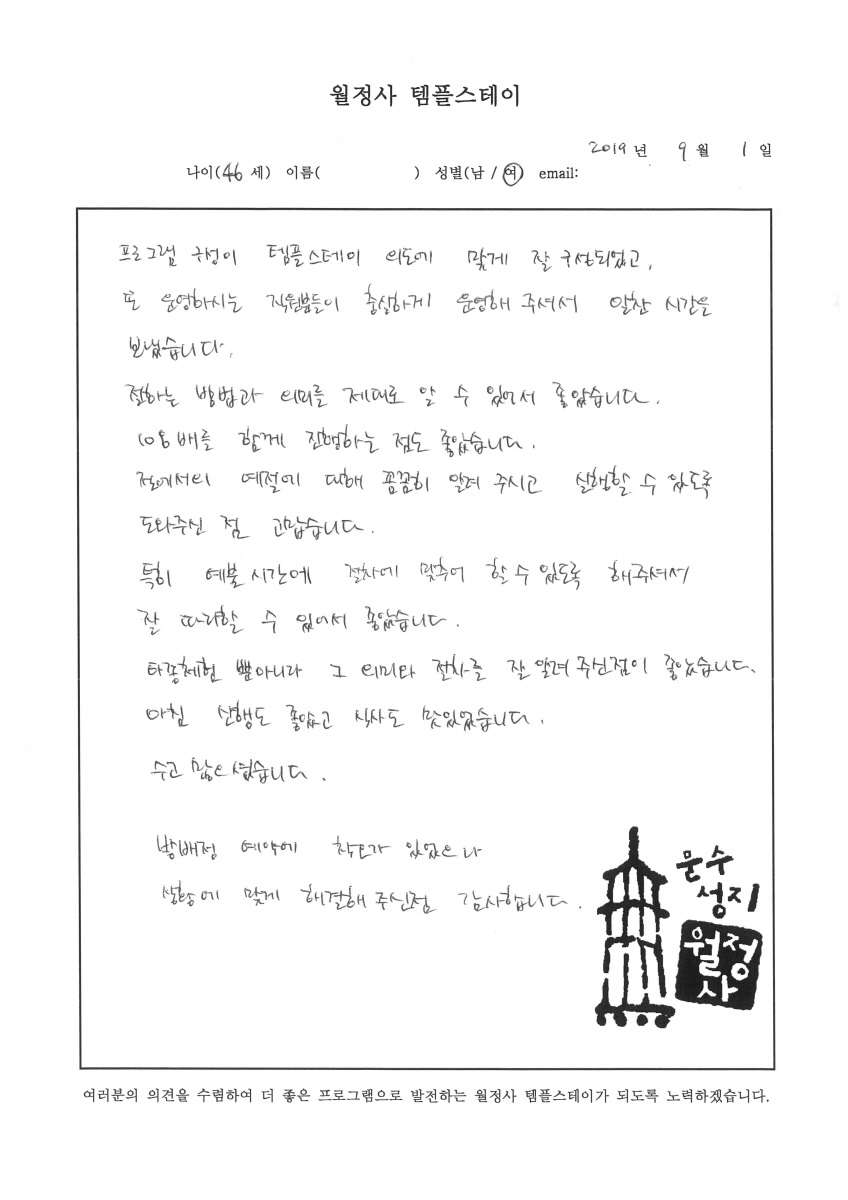 월정사 템플스테이
2019 년 9 월 1 일
나이(46 세) 이름( ) 성별(남 / 여) email:
프로그램 구성이 템플스테이 의도에 맞게 잘 구성되었고,
또 운영하시는 직원분들이 충실하게 운영해 주셔서 알찬 시간을
보냈습니다.
절하는 방법과 의미를 제대로 알 수 있어서 좋았습니다.
108배를 함께 진행하는 점도 좋았습니다.
절에서의 예절에 대해 꼼꼼히 알려 주시고 실행할 수 있도록
도와주신 점 고맙습니다.
특히 예불 시간에 절차에 맞추어 할 수 있도록 해주셔서
잘 따라할 수 있어서 좋았습니다.
타종체험 뿐아니라 그 의미와 절차를 잘 알려 주신점이 좋았습니다.
아침 산행도 좋았고 식사도 맛있었습니다.
수고 많으셨습니다.
방배정 예약에 착오가 있었으나
상황에 맞게 해결해 주신점 감사합니다.
문수
성지
월정
사
여러분의 의견을 수렴하여 더 좋은 프로그램으로 발전하는 월정사 템플스테이가 되도록 노력하겠습니다.